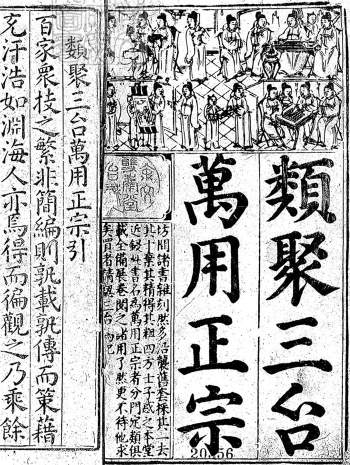 類聚三台
萬用正宗
坊間諸書雜刻然多沿襲舊套採其一去
其十棄其精得其粗四方士子惑之本堂
近鋟此書名為萬用正宗者分門定類俱
載全備展卷閱之諸用了然更不待他求
矣買者請認三台為記
類聚三台萬用正宗引
百家眾技之繁非簡編則孰載孰傳而策藉
充汗浩如淵海人亦焉得而徧觀之乃乘餘